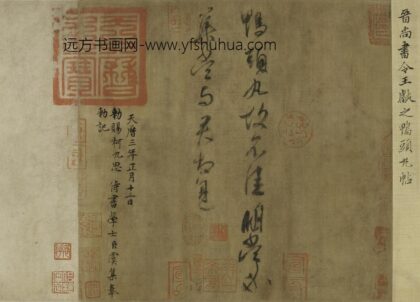 远方书画网-www.yfshuhua.com
晉尚書令王獻之鴨頭丸帖
鴨頭丸故不佳明當必
集當與君相見
天曆三年正月十二日
勑賜柯九思 侍書學士臣虞集奉
勑記